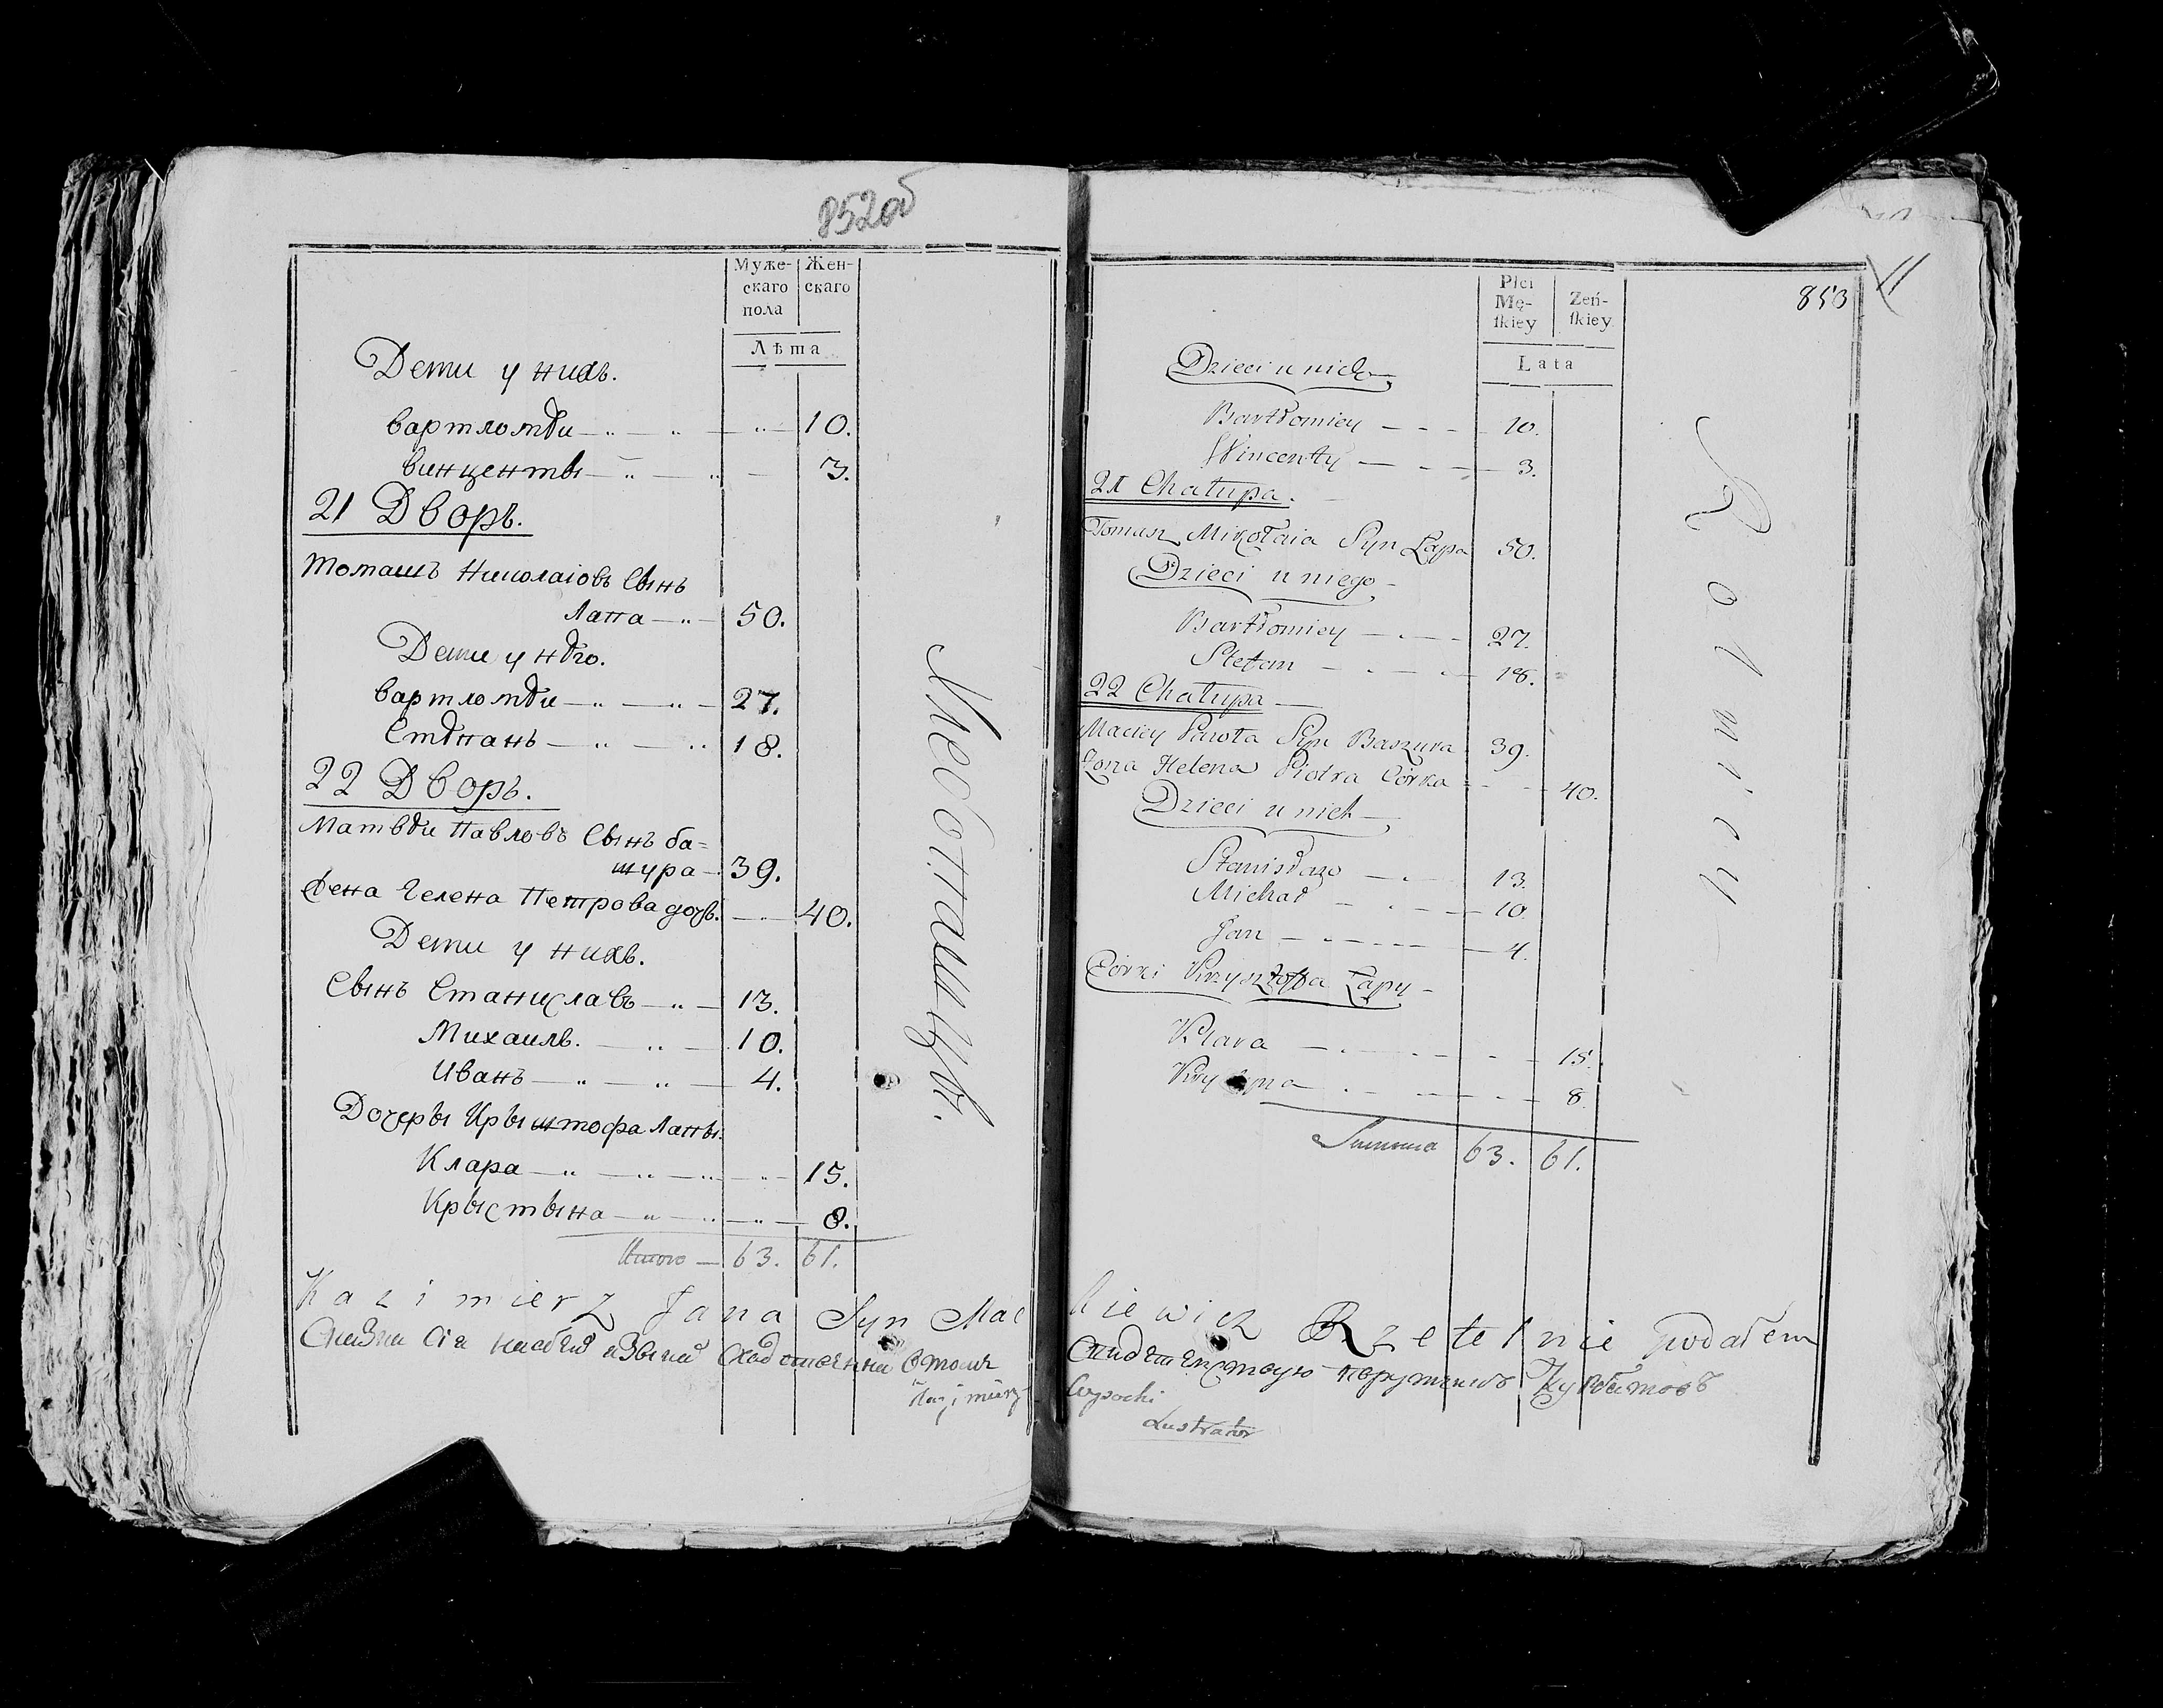 852об
Муже-
скаго
пола
Жен-
скаго
Лѣта
Дети у нихъ.
вартломѣи 10.
винценты 3.
21 Дворъ.
томашъ Николаіовъ Сынъ
Лапа 50.
Дети у нѣго.
вартломѣи 27.
Стѣпанъ 18.
22 Дворъ.
Матвѣи Павловъ Сынъ ба=
шура 39.
Гелена Петрова дочь. 40.
Дети у нихъ.
Сынъ Станиславъ 13.
Михаилъ. 10.
Иванъ 4.
Дочеры Крыштофа Лапы.
Клара 15.
Крыстына 8.
Итого 63. 61.
Kazimierz Jana Syn Mac
Kazimierz
853
Płci
Mę-
ſkiey
Zeń-
ſkiey
Lata
Dzieci u nich
Bartłomiey 10.
Wincenty 3.
21 Chałupa.
Tomasz Mikołaia Syn Łapa 50.
Dzieci u niego
Bartłomiey 27.
Stefan 18.
22 Chałupa
Maciey Pawła Syn Baszura 39.
Zona Helena Piotra Córka 40.
Dzieci u nich
Stanisław 13.
Michał 10.
Jan 4.
Córki Krzysztofa Łapy
Klara 15.
8.
Summa 63. 61.
kiewicz Rzetelnie podałem
Lustrator